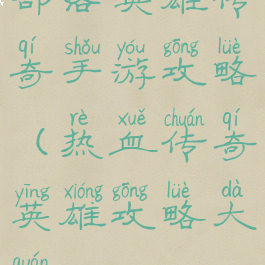 部落英雄传
qí shǒu yóu gōng lüè
奇手游攻略
rè xuě chuán qí
（热血传奇
yīng xióng gōng lüè dà
英雄攻略大
quán